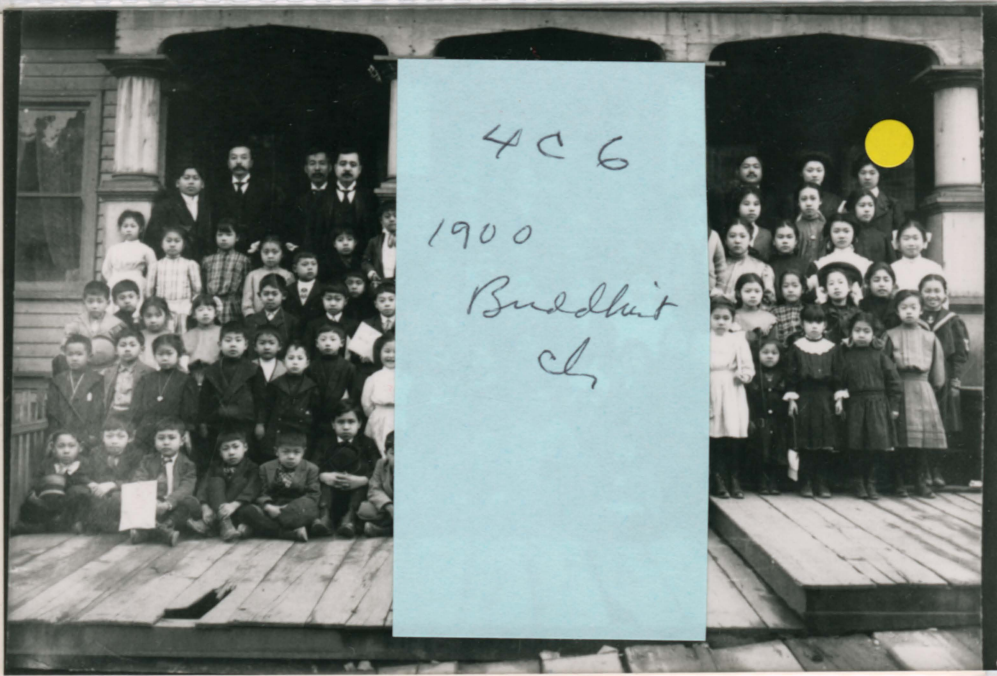 4C6
1900
Buddhist
Ch